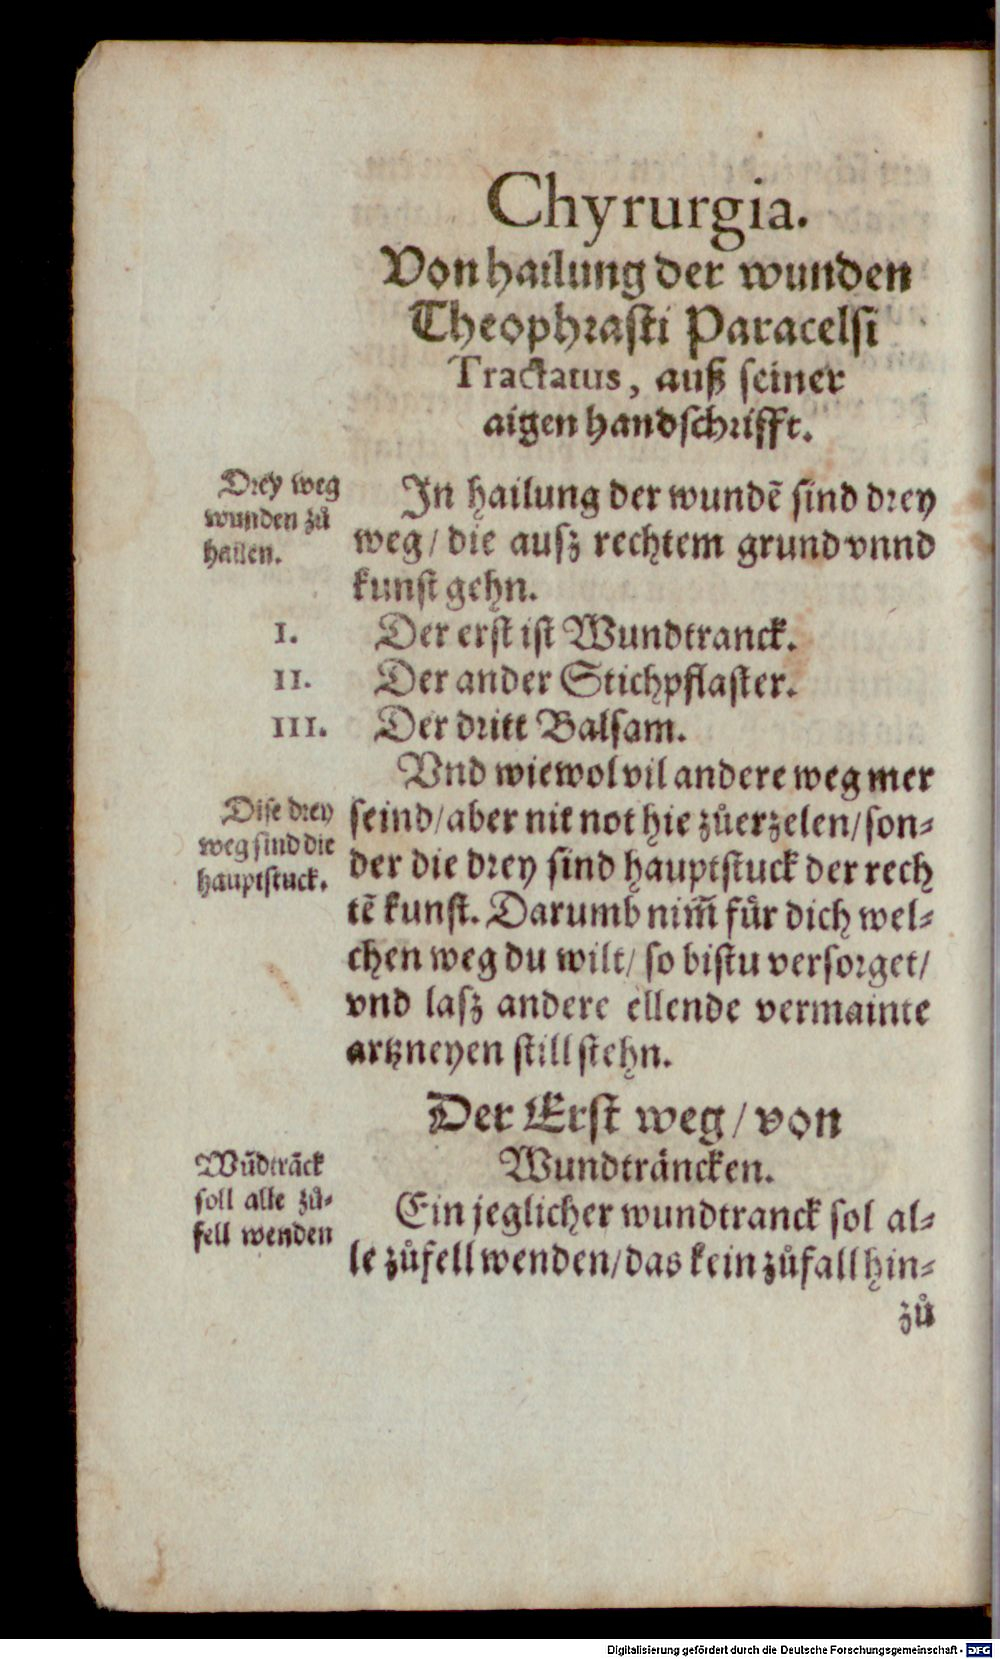 Chyrurgia.
Von hailung der wunden
Theophrasti Paracelsi
Tractatus, auß seiner
aigen handschrifft.
Drey weg
wunden zů
hailen.
In hailung der wundẽ sind drey
weg/ die ausz rechtem grund vnnd
kunst gehn.
I. Der erst ist Wundtranck.
II. Der ander Stichpflaster.
III. Der dritt Balsam.
Vnd wiewol vil andere weg mer
Dise drey
weg sind die
hauptstuck.
seind/ aber nit not hie zůerzelen/ son-
der die drey sind hauptstuck der rech
tẽ kunst. Darumb nim̃ für dich wel-
chen weg du wilt/ so bistu versorget/
vnd lasz andere ellende vermainte
artzneyen still stehn.
Der Erst weg/ von
Wundträncken.
Wũdtrãck
soll alle zů-
fell wenden
Ein jeglicher wundtranck sol al-
le zůfell wenden/ das kein zůfall hin-
zů
Digitalisierung gefördert durch die Deutsche Forschungsgemeinschaft - DFG